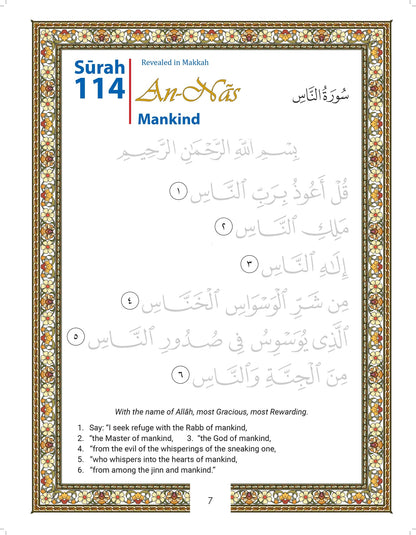 Sūrah
114
Revealed in Makkah
An-Nās
Mankind
سُورَةُ النَّاسِ
بِسْمِ اللَّهِ الرَّحْمَٰنِ الرَّحِيمِ
قُلْ أَعُوذُ بِرَبِّ ٱلنَّاسِ ١
مَلِكِ ٱلنَّاسِ ٢
إِلَٰهِ ٱلنَّاسِ ٣
مِن شَرِّ ٱلْوَسْوَاسِ ٱلْخَنَّاسِ ٤
ٱلَّذِى يُوَسْوِسُ فِى صُدُورِ ٱلنَّاسِ ٥
مِنَ ٱلْجِنَّةِ وَٱلنَّاسِ ٦
With the name of Allāh, most Gracious, most Rewarding.
1. Say: “I seek refuge with the Rabb of mankind,
2. “the Master of mankind, 3. “the God of mankind,
4. “from the evil of the whisperings of the sneaking one,
5. “who whispers into the hearts of mankind,
6. “from among the jinn and mankind.”
7